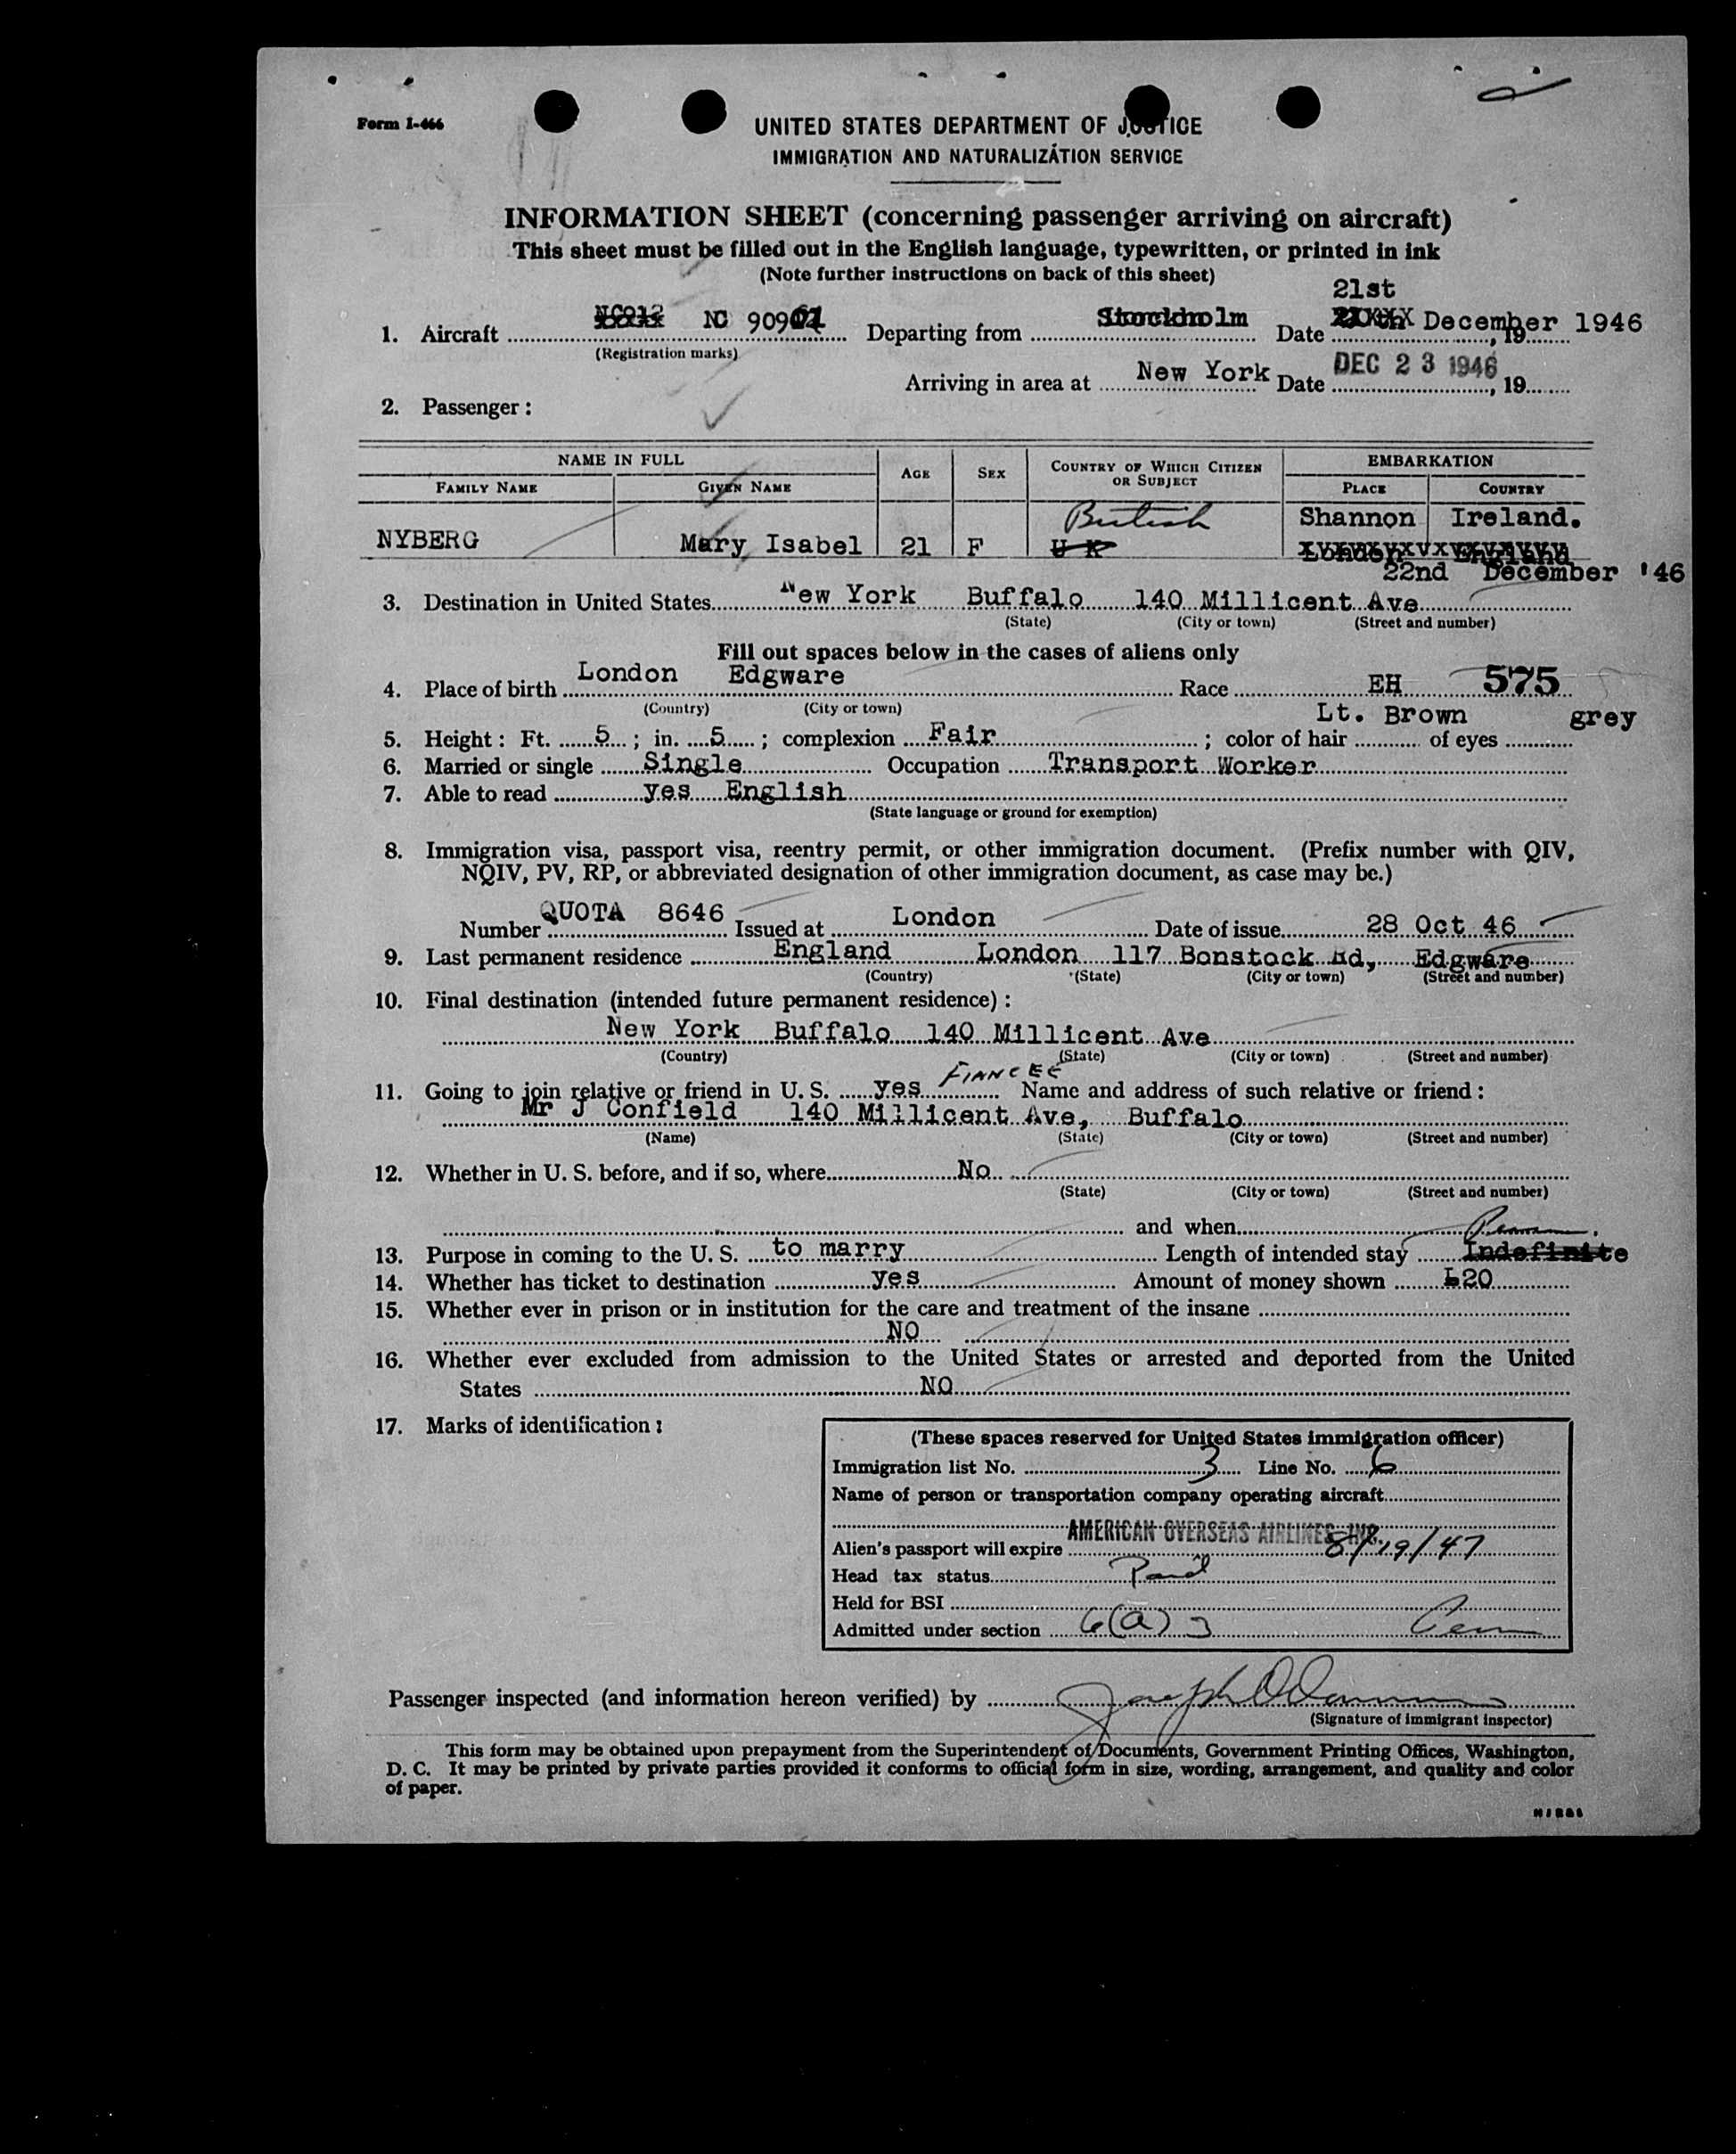 Form I-466
UNITED STATES DEPARTMENT OF JUSTICE
IMMIGRATION AND NATURALIZATION SERVICE
INFORMATION SHEET (concerning passenger arriving on aircraft)
This sheet must be filled out in the English language, typewritten, or printed in ink
(Note further instructions on back of this sheet)
21st
1. Aircraft NC 909 Departing from Stockholm Date December 1946, 19
(Registration marks)
Arriving in area at New York Date DEC 23 1946, 19
2. Passenger:
NAME IN FULL AGE SEX COUNTRY OF WHICH CITIZEN OR SUBJECT EMBARKATION
FAMILY NAME GIVEN NAME PLACE COUNTRY
British Shannon Ireland.
NYBERG Mary Isabel 21 F U K London England
22nd December '46
3. Destination in United States New York Buffalo 140 Millicent Ave
(State) (City or town) (Street and number)
Fill out spaces below in the cases of aliens only
4. Place of birth London Edgware Race EH 575
(Country) (City or town)
5. Height: Ft. 5; in. 5; complexion Fair; color of hair Lt. Brown of eyes grey
6. Married or single Single Occupation Transport Worker
7. Able to read yes English
(State language or ground for exemption)
8. Immigration visa, passport visa, reentry permit, or other immigration document. (Prefix number with QIV,
NQIV, PV, RP, or abbreviated designation of other immigration document, as case may be.)
Number QUOTA 8646 Issued at London Date of issue 28 Oct 46
9. Last permanent residence England London 117 Bonstock Rd, Edgware
(Country) (State) (City or town) (Street and number)
10. Final destination (intended future permanent residence):
New York Buffalo 140 Millicent Ave
(Country) (State) (City or town) (Street and number)
11. Going to join relative or friend in U. S. yes FIANCEE Name and address of such relative or friend:
Mr J Confield 140 Millicent Ave, Buffalo
(Name) (State) (City or town) (Street and number)
12. Whether in U. S. before, and if so, where No
(State) (City or town) (Street and number)
and when
13. Purpose in coming to the U. S. to marry Length of intended stay Indefinite
14. Whether has ticket to destination yes Amount of money shown £20
15. Whether ever in prison or in institution for the care and treatment of the insane
NO
16. Whether ever excluded from admission to the United States or arrested and deported from the United
States NO
17. Marks of identification:
(These spaces reserved for United States immigration officer)
Immigration list No. 3 Line No. 6
Name of person or transportation company operating aircraft
AMERICAN OVERSEAS AIRLINES, INC.
Alien's passport will expire 8/19/47
Head tax status Paid
Held for BSI
Admitted under section 6(a) 3
Passenger inspected (and information hereon verified) by
(Signature of immigrant inspector)
This form may be obtained upon prepayment from the Superintendent of Documents, Government Printing Offices, Washington,
D. C. It may be printed by private parties provided it conforms to official form in size, wording, arrangement, and quality and color
of paper.